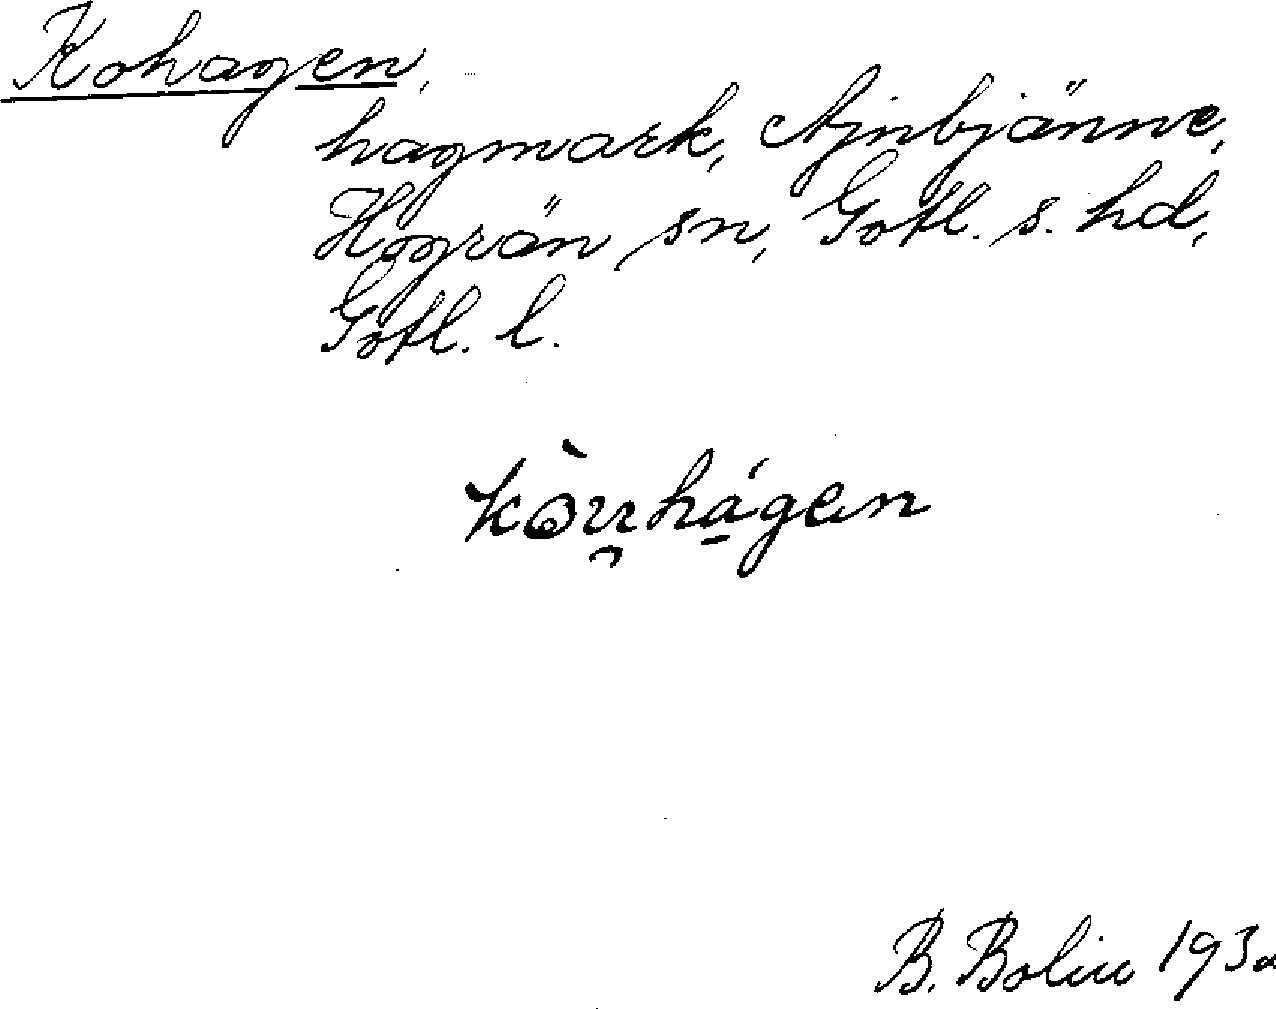 Kohagen,
hagmark, Ajnbjänne,
Hogrän sn, Gotl. s. hd,
Gotl. l.
B. Bolin 193